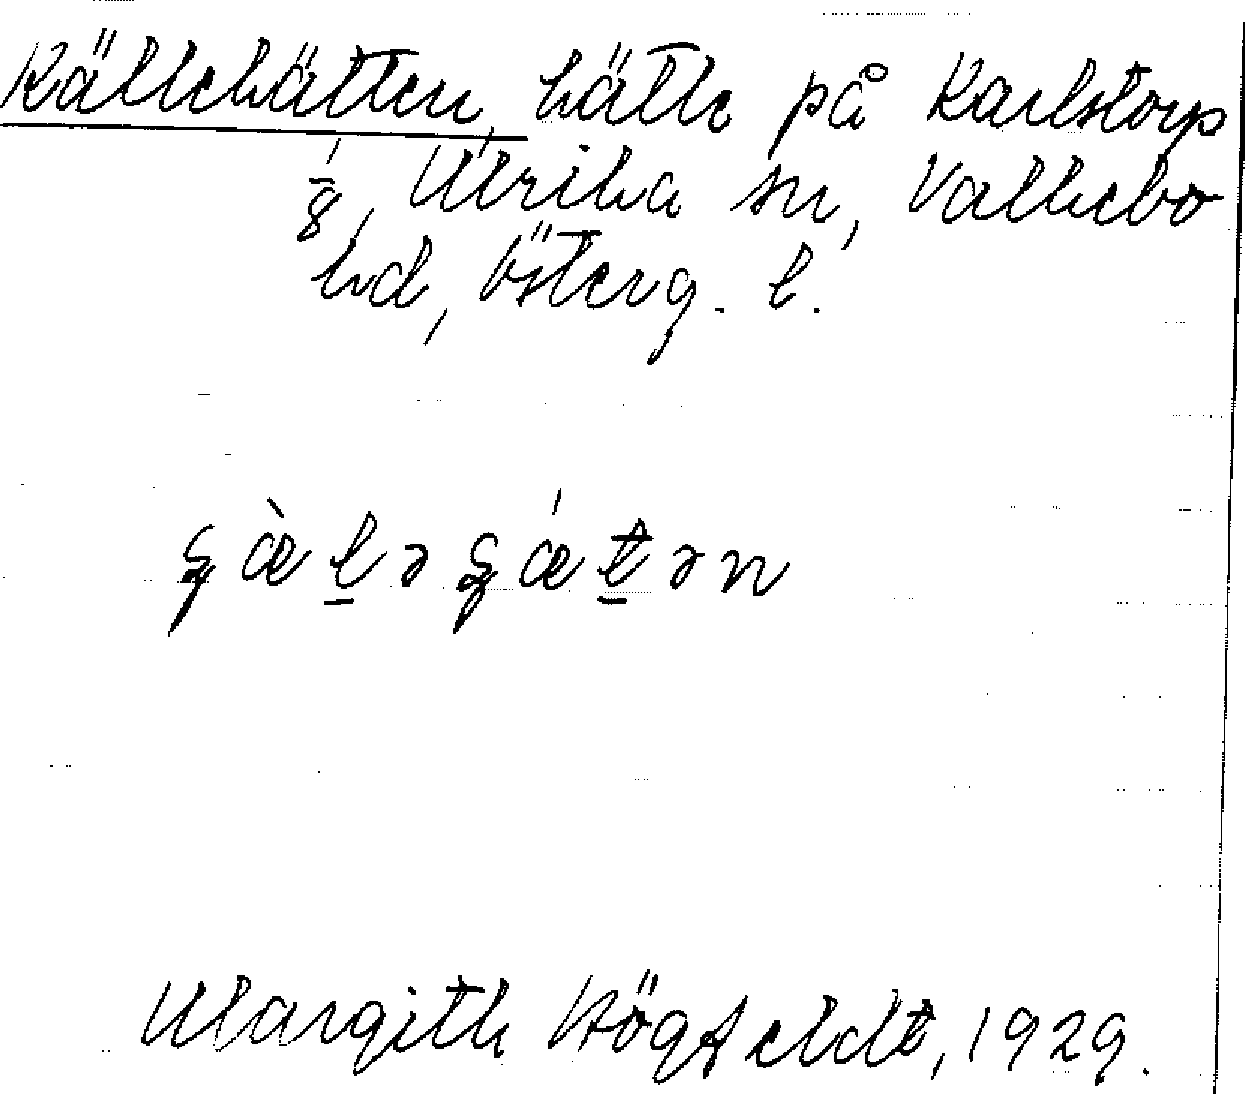 Källekätten, kätte på Karlstorp
1/8, Ulrika sn, Valkebo
hd, Österg. l.
çæ̀l̠əçǽt̠ən
Margith Högfeldt, 1929.